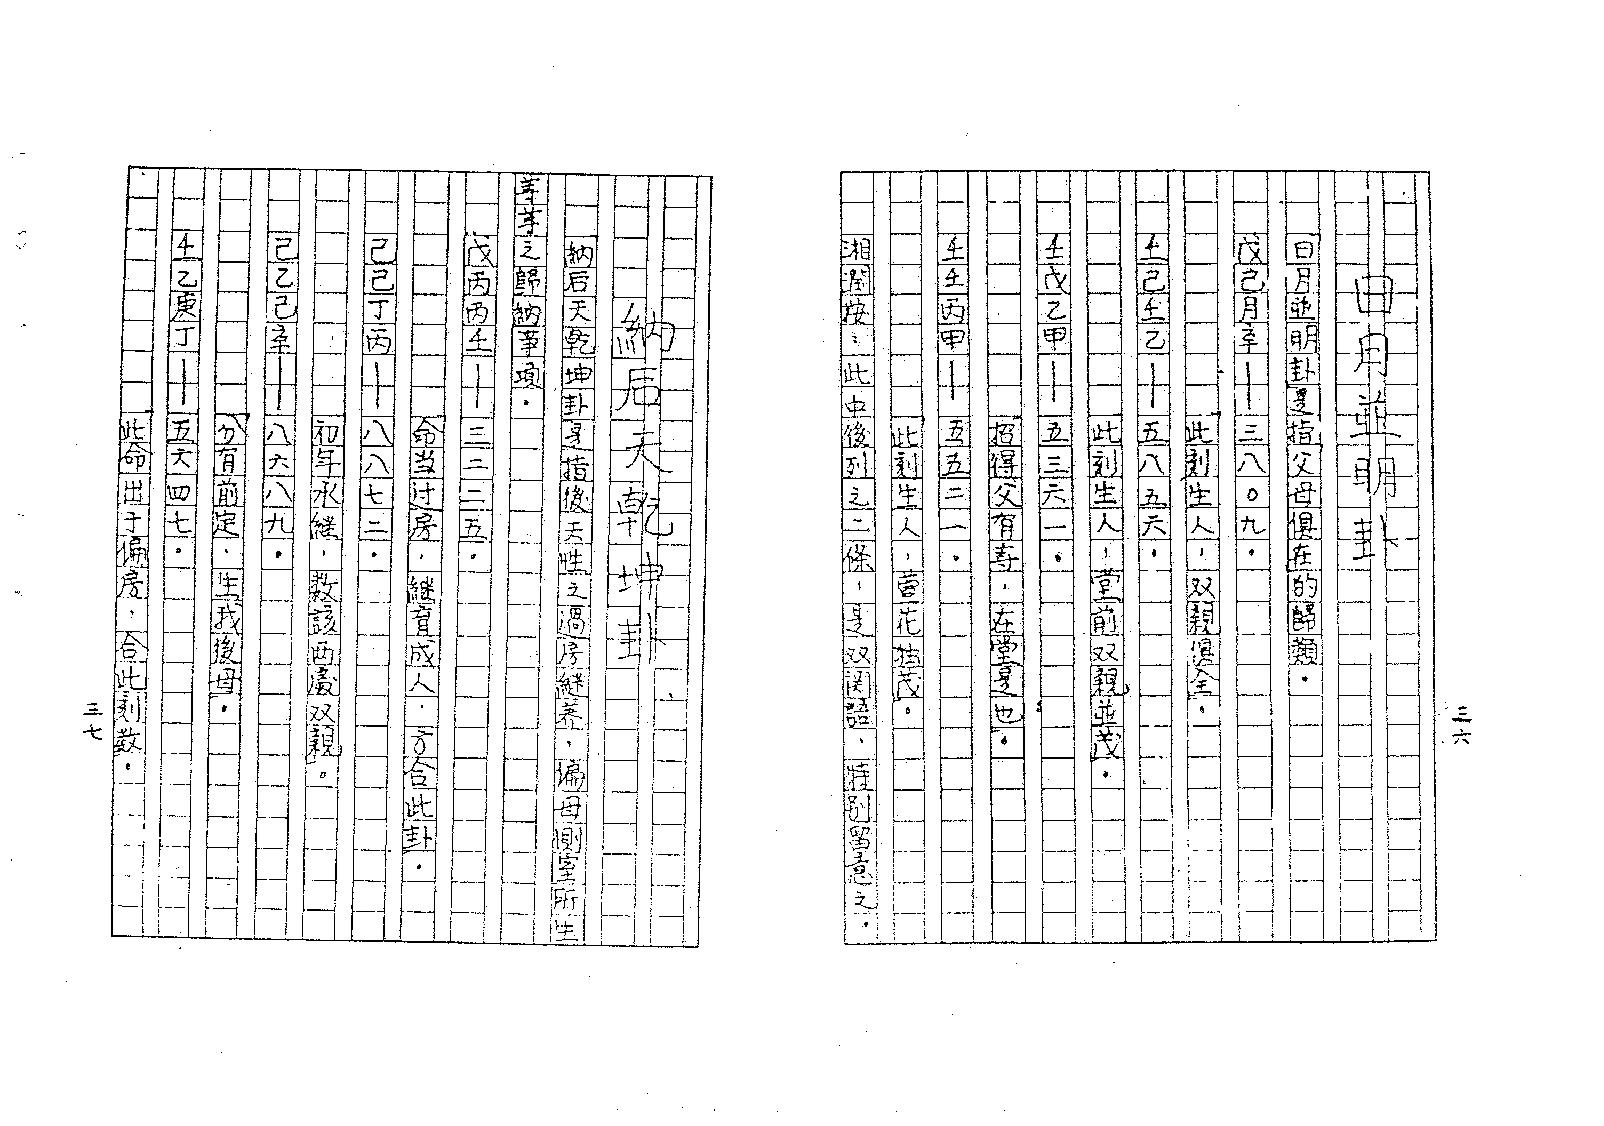 日月並明卦
日月並明卦是指父母俱在的歸類．
戊己月辛——三八０九．
此刻生人，双親俱全．
壬己壬乙——五八五六．
此刻生人，堂前双親並茂．
壬戊乙甲——五三六一．
招得父有寿．在堂是也．
壬壬丙甲——五五二一．
此刻生人，萱花猶茂．
湘潤按：此中後列之二條，是双関語．特別留意之．
三六
納后天乾坤卦
納后天乾坤卦是指後天性之過房継养．偏母側室所生
等等之歸納事項．
戊丙丙壬——三二二五．
命当过房．継育成人．方合此卦．
己己丁丙——八八七二．
初年承継，数該両處双親。
己乙己辛——八六八九．
分有前定．生我後母．
壬乙庚丁——五六四七．
此命出于偏房，合此刻数．
三七